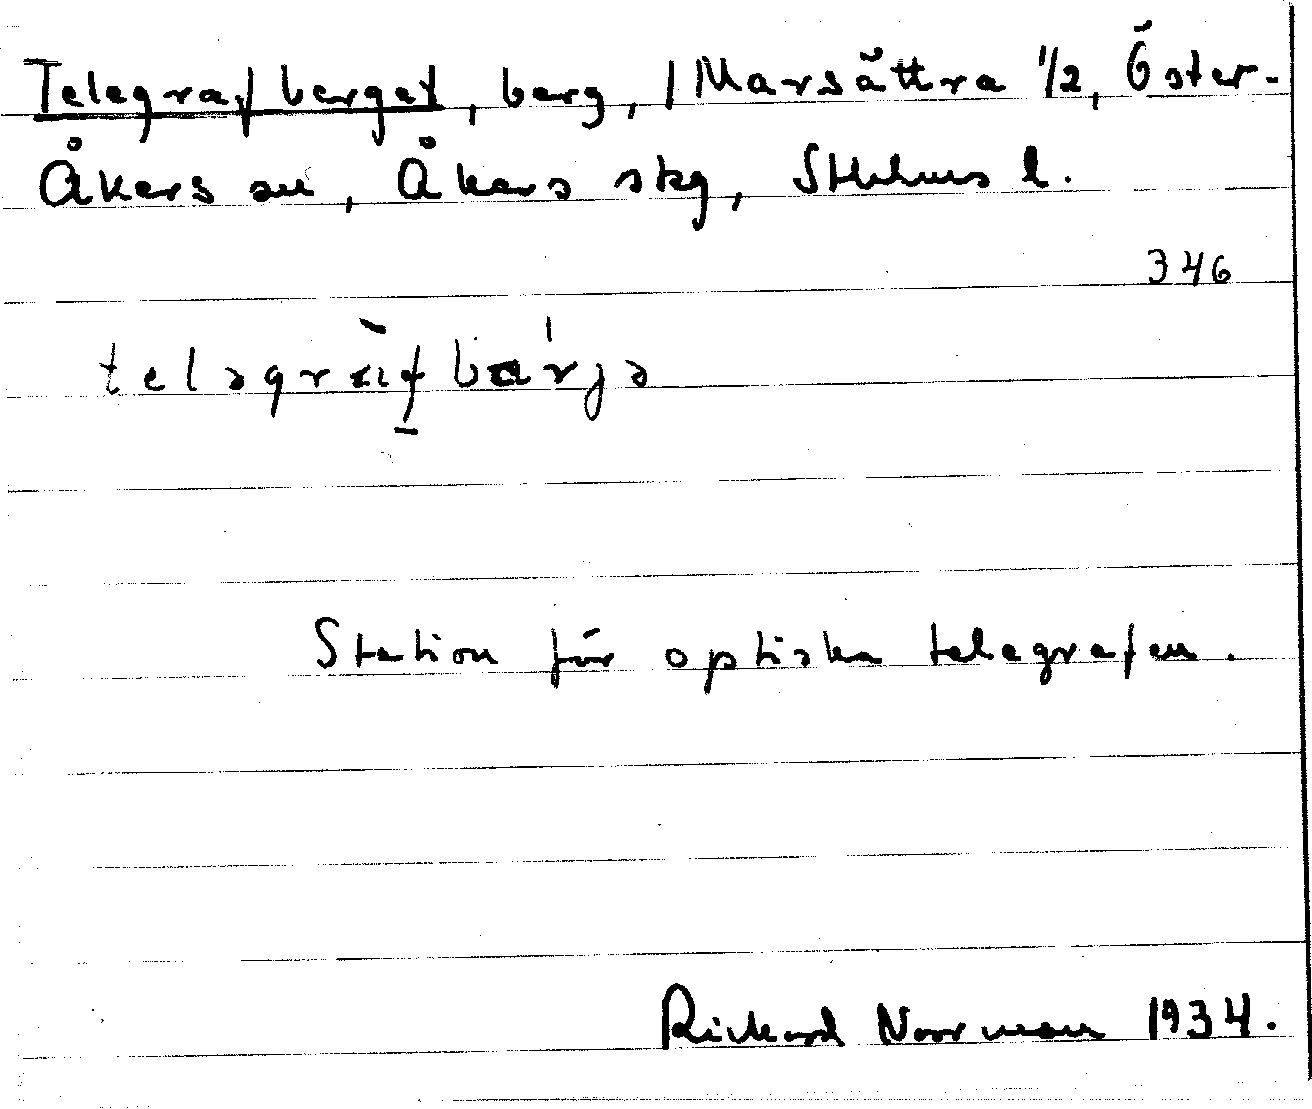 Telegrafberget, berg, / Marsättra 1/2, Öster-
Åkers sn, Åkers skg, Sthlms l.
346
teləgrafbärjə
Station för optiska telegrafen.
Rickard Noorman 1934.